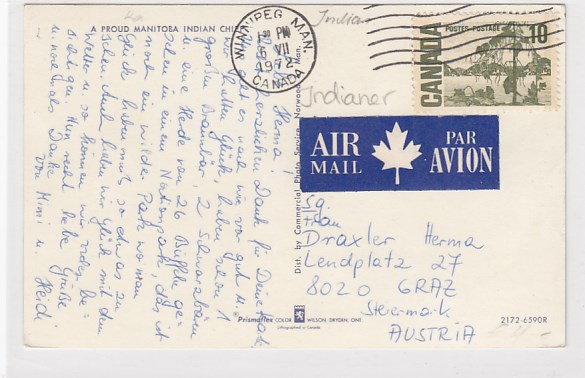 A PROUD MANITOBA INDIAN CHIEF
WINNIPEG MAN.
PM
VII
1972
CANADA
Indian
Indianer
CANADA
POSTES-POSTAGE
10
AIR MAIL
PAR AVION
Herma!
herzlichen Dank für Deine Karte
Uns geht es nach wie vor gut u. wir
hatten Glück, haben schon 1
großen Braunbär, 2 Schwarzbären
u. eine Herde von 26 Büffeln ge-
sehen in einem Nationalpark, das ist
ein wilder Park wo man
Glück haben muß so etwas zu
sehen. Auch haben wir Glück mit dem
Wetter u. so können wir vollauf be-
Nun recht liebe Grüße
u. nochmals Danke
von Mimi u. Heidi
Dist. by Commercial Photo Service, Norwood, Man.
Sg.
Frau
Draxler Herma
Lendplatz 27
8020 GRAZ
Steiermark
AUSTRIA
Prismaflex COLOR WILSON, DRYDEN, ONT.
Lithographed in Canada
2172-6590R